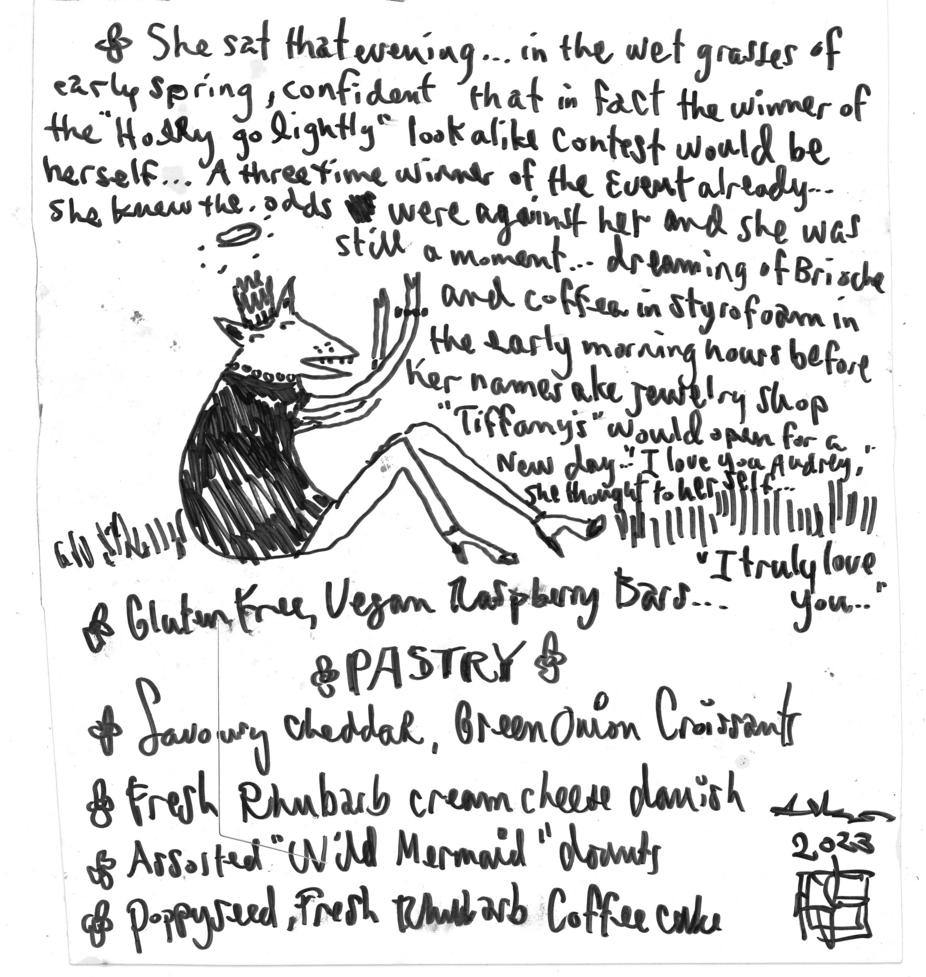 She sat that evening... in the wet grasses of
early spring, confident that in fact the winner of
the "Holly go lightly" look alike Contest would be
herself... A three time winner of the Event already...
she knew the odds were against her and she was
still a moment... dreaming of Brioche
and coffee in styrofoam in
the early morning hours before
her names ake jewelry shop
"Tiffanys" would open for a
New day... "I love you Audrey,"
she thought to her self...
"I truly love
you..."
Gluten Free, Vegan Raspberry Bars...
PASTRY
Savoury cheddar, Green Onion Croissant
Fresh Rhubarb cream cheese danish
Assorted "Wild Mermaid" donuts
2023
Poppyseed, Fresh Rhubarb Coffee cake